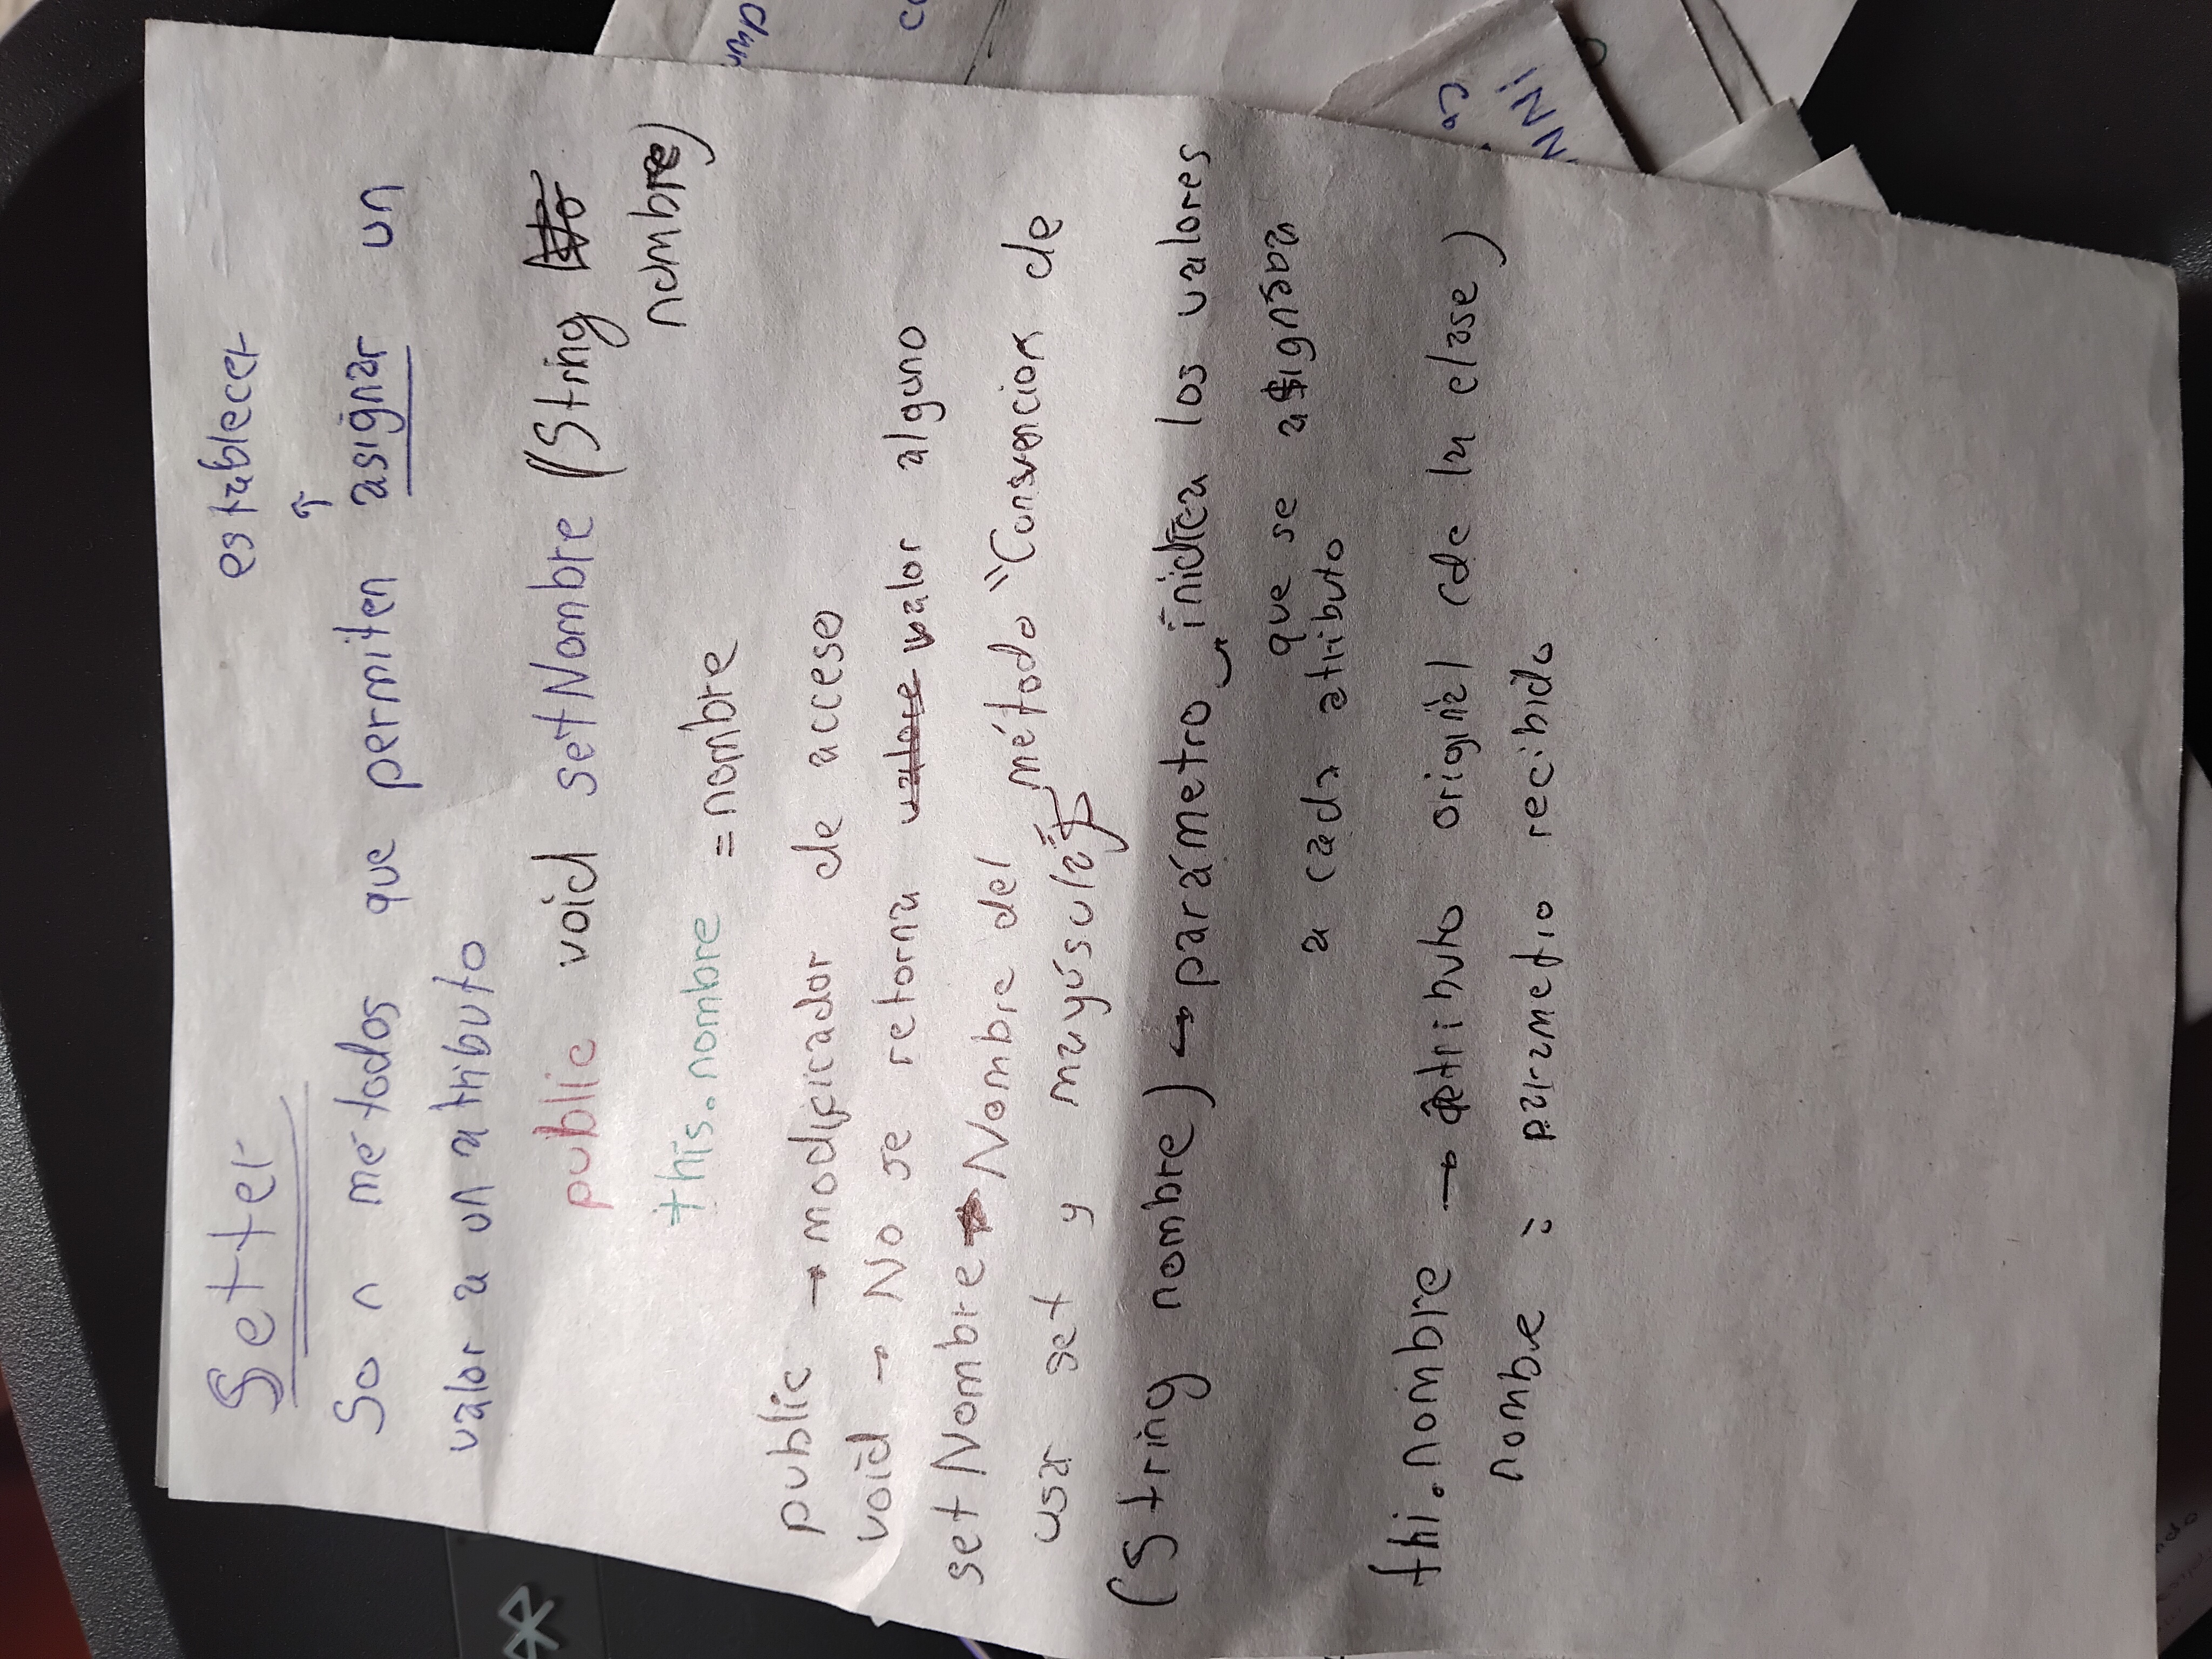 Setter
establecer
↑
Son métodos que permiten asignar un
valor a un atributo
public void setNombre (String
nombre)
this.nombre = nombre
public → modificador de acceso
void → No se retorna valor alguno
set Nombre → Nombre del método "Convencion de
usar set y mayúsula"
(String nombre) → parámetro → inidica los valores
que se asignaba
a cada atributo
thi.nombre → atributo original (de la clase)
nombre : parametro recibido
ump
NNi